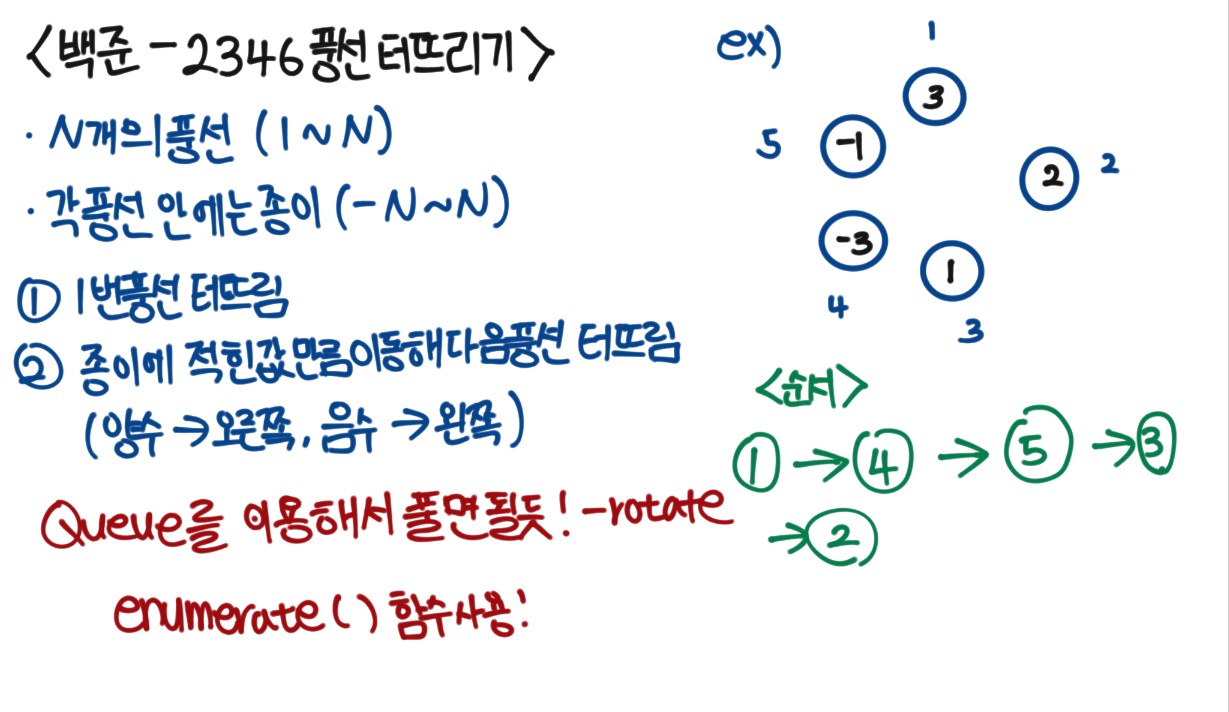 <백준 - 2346 풍선 터뜨리기>
· N개의 풍선 (1 ~ N)
· 각 풍선 안에는 종이 (-N ~ N)
① 1번 풍선 터뜨림
② 종이에 적힌 값 만큼 이동해 다음 풍선 터뜨림
(양수 → 오른쪽, 음수 → 왼쪽)
Queue를 이용해서 풀면 될듯! - rotate
enumerate() 함수 사용!
ex)
1
3
5
-1
2
2
-3
1
4
3
<순서>
① → ④ → ⑤ → ③
→ ②